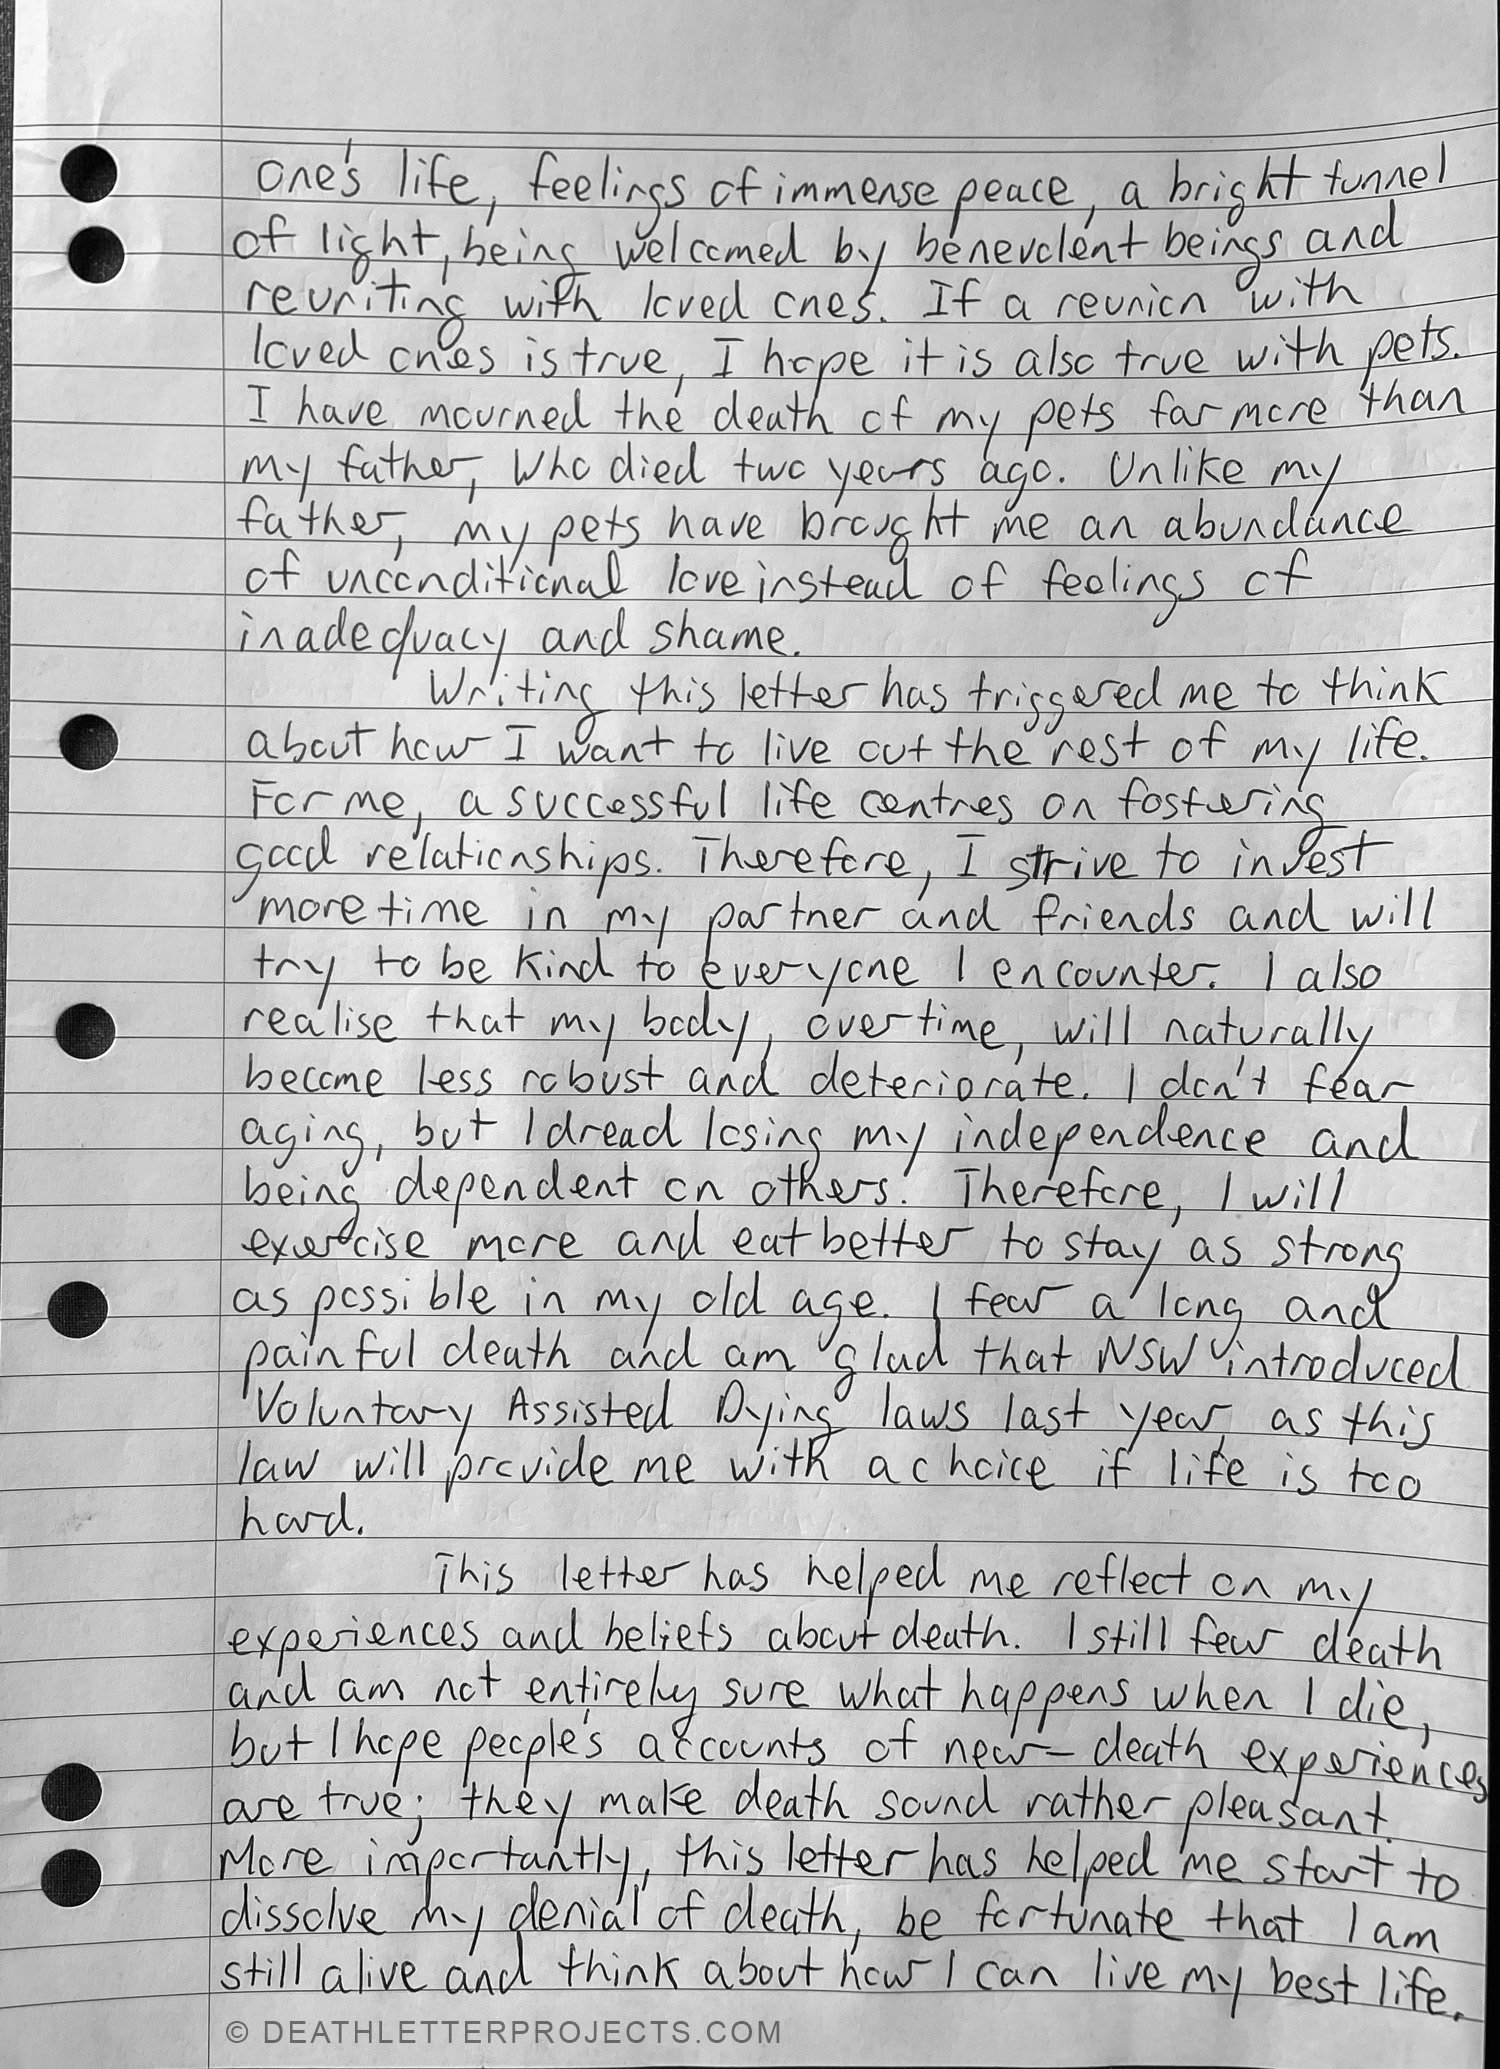 one's life, feelings of immense peace, a bright tunnel
of light, being welcomed by benevolent beings and
reuniting with loved ones. If a reunion with
loved ones is true, I hope it is also true with pets.
I have mourned the death of my pets far more than
my father, who died two years ago. Unlike my
father, my pets have brought me an abundance
of unconditional love instead of feelings of
inadequacy and shame.
Writing this letter has triggered me to think
about how I want to live out the rest of my life.
For me, a successful life centres on fostering
good relationships. Therefore, I strive to invest
more time in my partner and friends and will
try to be kind to everyone I encounter. I also
realise that my body, over time, will naturally
become less robust and deteriorate. I don't fear
aging, but I dread losing my independence and
being dependent on others. Therefore, I will
exercise more and eat better to stay as strong
as possible in my old age. I fear a long and
painful death and am glad that NSW introduced
Voluntary Assisted Dying laws last year, as this
law will provide me with a choice if life is too
hard.
This letter has helped me reflect on my
experiences and beliefs about death. I still fear death
and am not entirely sure what happens when I die,
but I hope people's accounts of near-death experiences
are true; they make death sound rather pleasant.
More importantly, this letter has helped me start to
dissolve my denial of death, be fortunate that I am
still alive and think about how I can live my best life.
© DEATHLETTERPROJECTS.COM